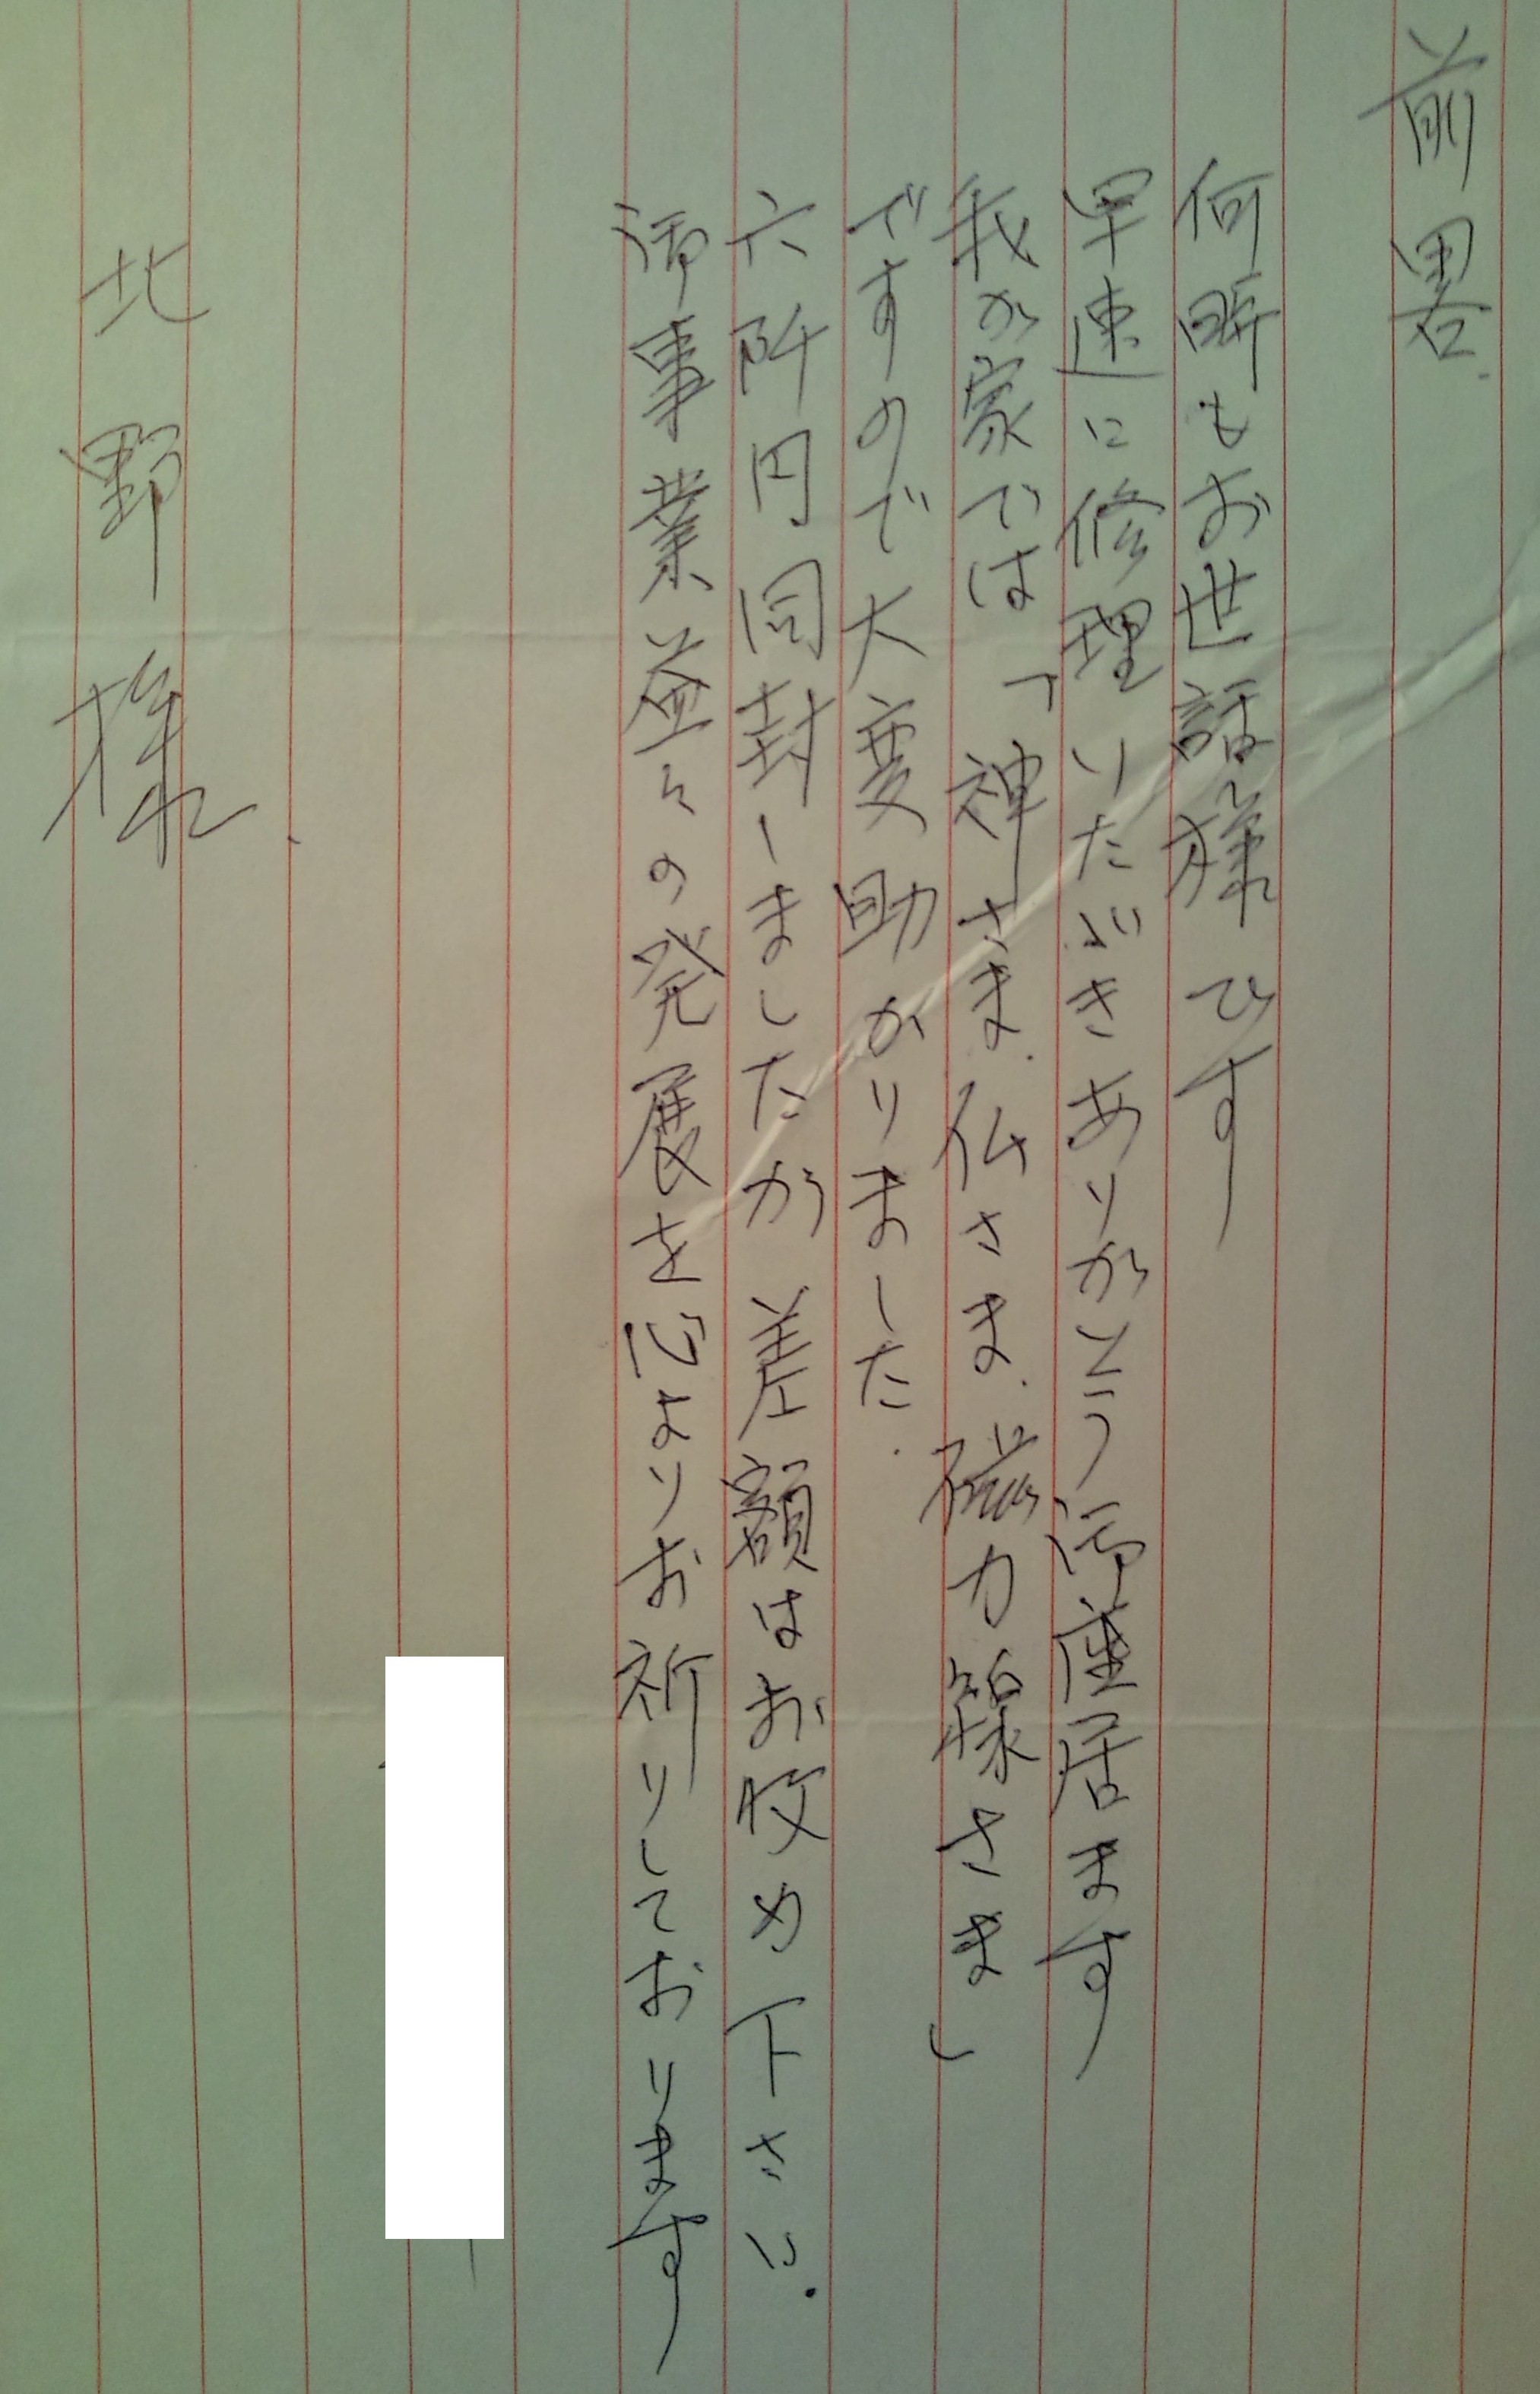 前畧.
何時もお世話様です
早速に修理いたゞきありがとう御座居ます
我が家では「神さま.仏さま.磁力線さま」
ですので大変助かりました.
六阡円同封しましたが 差額はお收め下さい.
御事業益々の発展を心よりお祈りしております
北野様.